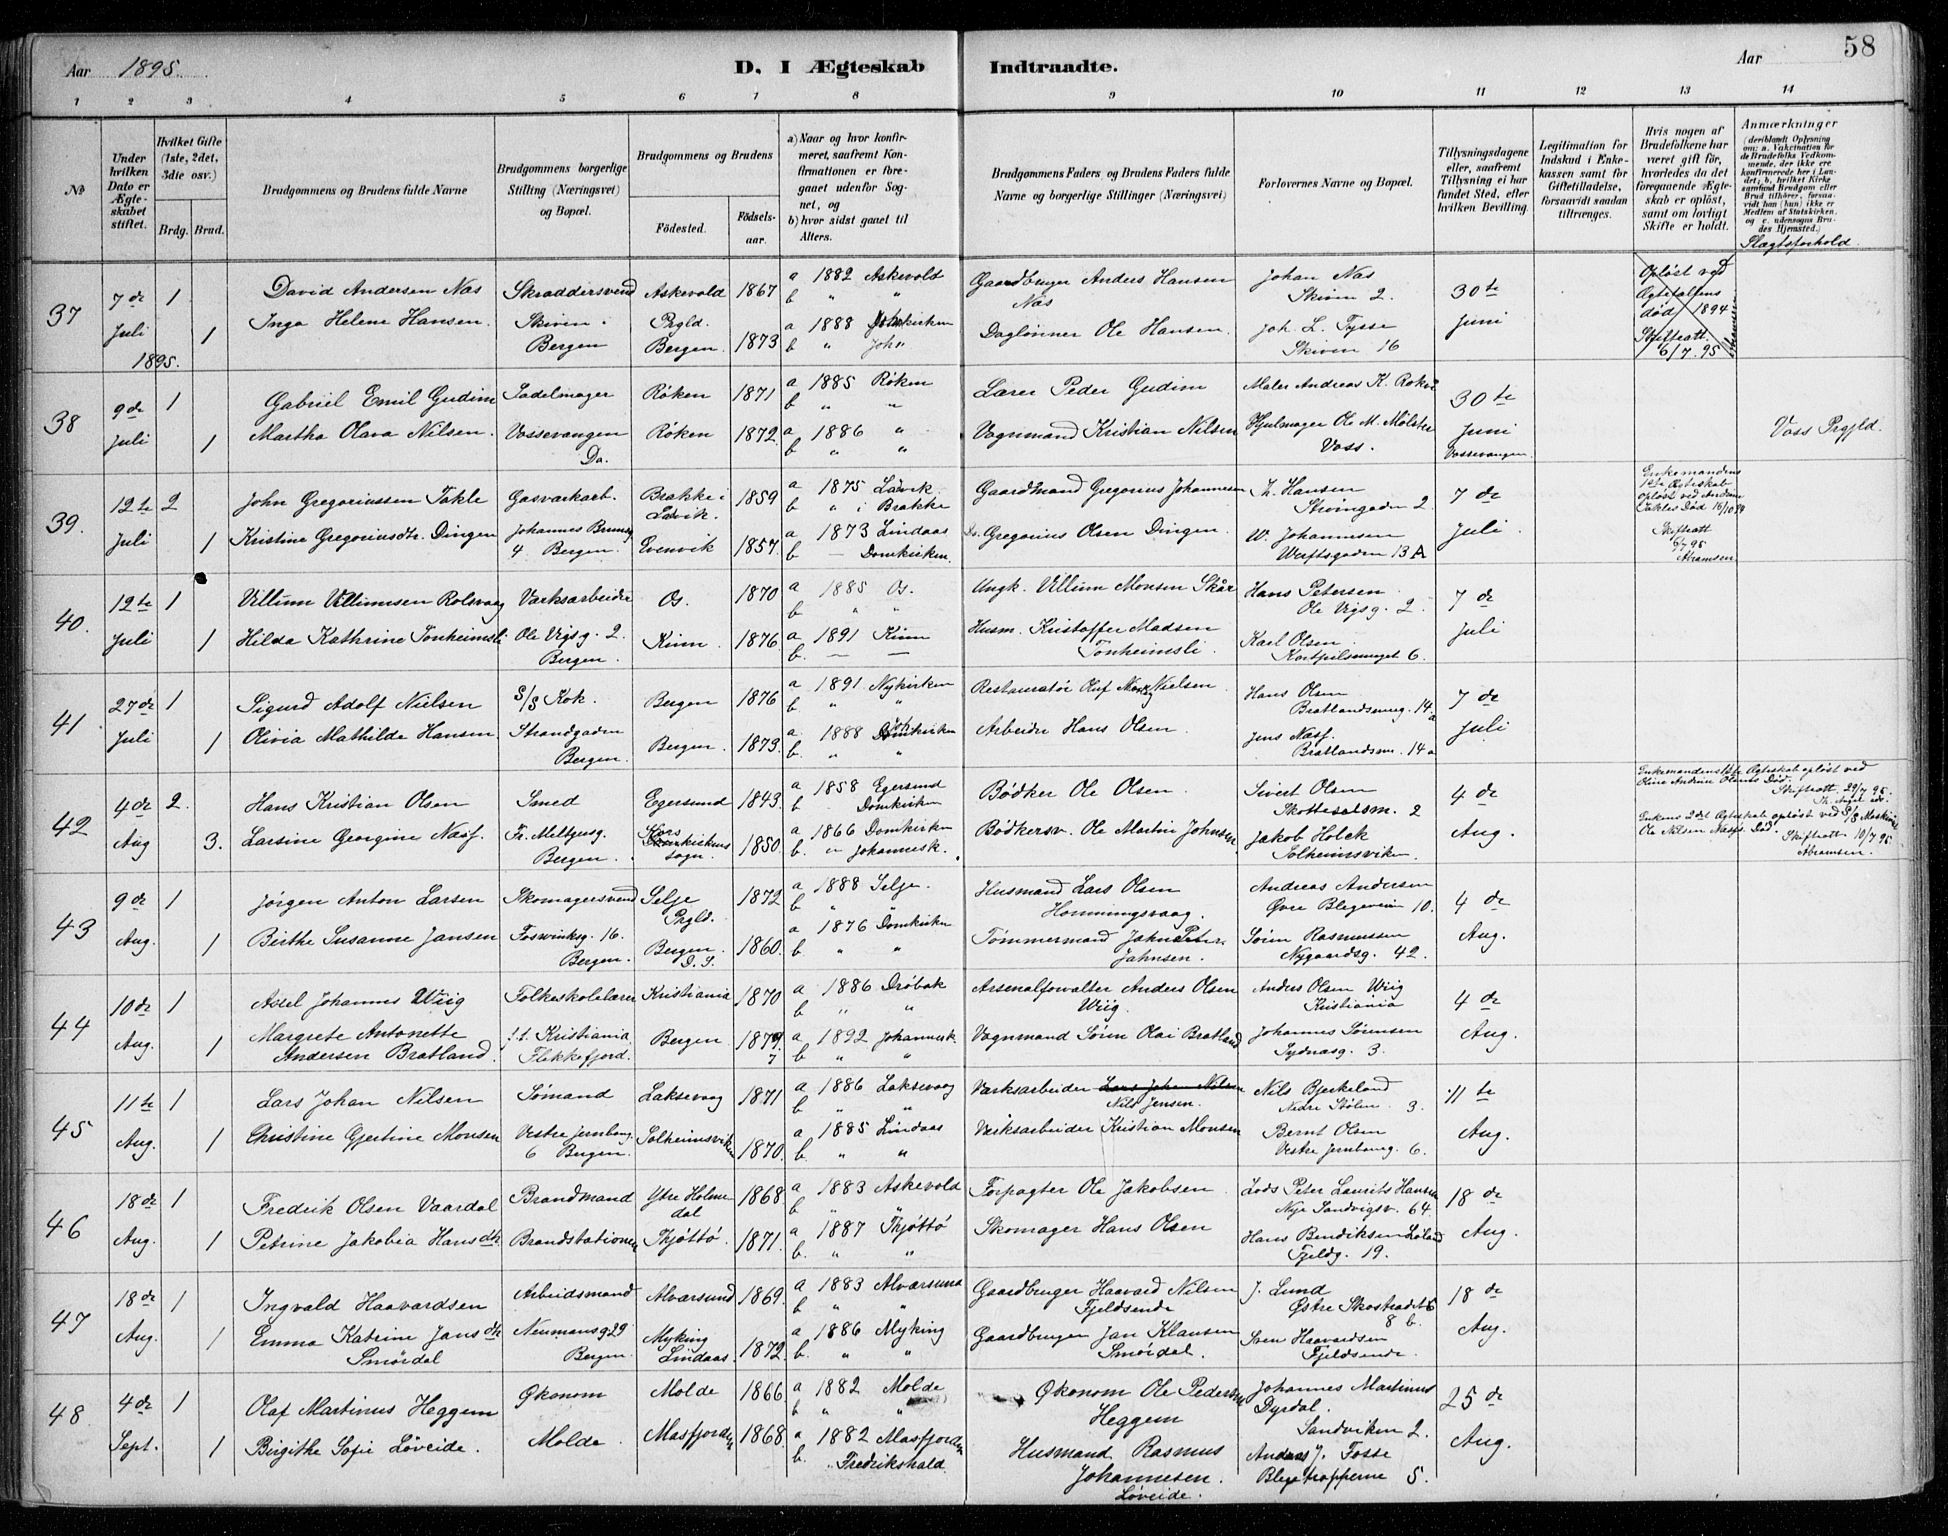 Aar 1895. D. I Ægteskab Indtraadte. Aar 58
1 2 3 4 5 6 7 8 9 10 11 12 13 14
No
Under hvilken Dato er Ægteskabet stiftet.
Hvilket Gifte (1ste, 2det, 3die osv.)
Brdg. Brud.
Brudgommens og Brudens fulde Navne
Brudgommens borgerlige Stilling (Næringsvei) og Bopæl.
Brudgommens og Brudens
Födested. Födselsaar.
a) Naar og hvor konfirmeret, saafremt Konfirmationen er foregaaet udenfor Sognet, og
b) hvor sidst gaaet til Alters.
Brudgommens Faders, og Brudens Faders fulde Navne og borgerlige Stillinger (Næringsvei)
Forlovernes Navne og Bopæl.
Tillysningsdagene eller, saafremt Tillysning ei har fundet Sted, efter hvilken Bevilling.
Legitimation for Indskud i Enkekassen samt for Giftetilladelse, forsaavidt saadan tiltrænges.
Hvis nogen af Brudefolkene har været gift för, hvorledes da det foregaaende Ægteskab er oplöst, samt om lovligt Skifte er holdt.
Anmærkninger
(deriblandt Oplysning om: a. Vakcination for de Brudefolks Vedkommende, der ikke ere konfirmerede her i Landet; b. hvilket Kirkesamfund Brudgom eller Brud tilhörer, forsaavidt han (hun) ikke er Medlem af Statskirken, og c. udensogns Brudes Hjemsted.)
Slægtsforhold
37 7de Juli 1895. 1 1
David Andersen Næs
Inga Helene Hansen.
Skræddersvend
Skiven i
Bergen
Askevold Prgld. 1867
Bergen 1873
a 1882 Askevold
b " "
a 1888 Johskirken
b " Joh"
Gaardbruger Anders Hansen
Næs
Daglønner Ole Hansen
Johan Næs
Skiven 2.
Joh. L. Tysse
Skiven 16
30te Juni
Opløst ved
Ægtefællens
død / 1894
Skifteatt.
6/7. 95
38 9de Juli 1 1
Gabriel Emil Gudim
Martha Olava Nilsen.
Sadelmager
Vossevangen
Do.
Røken 1871
Røken 1872
a 1885 Røken
b " "
a 1886 "
b " "
Lærer Peder Gudim
Vognmand Kristian Nilsen
Maler Andreas K. Rokne
Hjulmager Ole M. Mølster
Voss.
30te Juni
Vossevangen
Voss Prgjld.
39. 12te Juli 2 1
John Gregoriussen Takle
Kristine Gregoriusdtr. Dingen
Gasværkarb.
Johannes Brunsg
4. Bergen.
Brække i
Ladvik. 1859
Evenvik 1857
a 1875 Ladvik.
b " i Brække
a 1873 Lindaas
b — Domkirken.
Gaardmand Gregorius Johannesen
Do. Gregorius Olsen Dingen
Th. Hansen
Steingaden 2
W. Johannesen
Werftsgaden 13 A
7de Juli
Enkemandens
1ste Ægteskab
opløst ved Andrine
Takles Død 16/10 94
Skifteatt
6/7 95
Abramsen
40. 12te Juli 1 1
Villum Villumsen Rolsvaag
Hilda Kathrine Tonheimsli
Værksarbeider
Ole Vigsg. 2.
Bergen.
Os. 1870
Kinn. 1876
a 1885 Os.
b " "
a 1891 Kinn
b. — —
Ungk. Villum Monsen Skår
Husm. Kristoffer Madsen
Tonheimsli.
Hans Petersen
Ole Vigsg. 2.
Karl Olsen
Kortpilsmuget 6.
7de Juli
41 27de Juli 1 1
Sigurd Adolf Nielsen
Olivia Mathilde Hansen
S/S Kok.
Strandgaden
Bergen.
Bergen 1876
Bergen. 1873.
a 1891 Nykirken
b " "
a. 1888 Domkirken
b. " "
Restauratør Oluf Nielsen
Arbeider Hans Olsen
Hans Olsen
Bratlandsmug. 14.a
Jens Næss.
Bratlandsm. 14 a
7de Juli
42 4de Aug 2. 3.
Hans Kristian Olsen
Larsine Georgine Næss.
Smed
Fr. Meltzersg.
Bergen.
Egersund 1843.
Kors
sogn. 1850.
a 1858 Egersund
b - Domkirken
a 1866 Domkirken
b. " Johannesk.
Bødker Ole Olsen
Bødkersv. Ole Martin Johnsen
Sivert Olsen
Skottesalsm. 2
Jakob Holck
Solheimsviken
4de Aug.
Enkemandens 1ste Ægteskab opløst ved
Oline Andrine Olsens Død.
Skifteatt. 29/7. 95.
Enkens 2det Ægteskab opløst ved S/S Maskinist
Ole Nilsen Næss's Død. Skifteatt. 10/7 95.
Abramsen.
43 9de Aug. 1 1
Jørgen Anton Larsen
Birthe Susanne Jansen
Skomagersvend
Foswinksg. 16.
Bergen.
Selje
Prgld. 1872
Bergen
D. S. 1860.
a 1888 Selje.
b " "
a 1876 Domkirken
b " "
Husmand Lars Olsen
Honningsvaag.
Tømmermand Jahn Peter
Jahnsen.
Andreas Andersen
Øvre Blegeveien 10.
Søren Rasmussen
Nygaardsg. 42.
4de Aug.
44 10de Aug. 1 1
Axel Johannes Wiig
Margrete Antonette
Andersen Bratland.
Folkeskolelærer
f.t. Kristiania,
Flekkefjord.
Kristiania 1870
Bergen 1877
a 1886 Drøbak
b " "
a 1892 Johannesk
b " "
Arsenalforvalter Anders Olsen
Wiig.
Vognmand Søren Olai Bratland
Anders Olsen Wiig
Kristiania
Johannes Sørensen
Sydnæsg. 3.
4de Aug.
45 11te Aug. 1 1
Lars Johan Nilsen
Christine Gjertine Monsen
Sømand
Vestre Jernbaneg.
6 Bergen.
Laksevaag 1871
Solheimsviken 1870.
a 1886 Laksevaag
b " "
a 1885 Lindaas
b. " "
Værksarbeider Lars Johan Nilsen
Nils Jensen.
Værksarbeider Kristian Monsen
Nils Bjerkeland
Nedre Stølen 3.
Bernt Olsen
Vestre Jernbaneg. 6.
11te Aug.
46 18de Aug. 1 1
Fredrik Olsen Vaardal
Petrine Jakobia Hansdtr.
Brandmand
Brandstationen
Ytre Holmedal 1868
Thjøttø. 1871.
a 1883 Askevold
b. "
a 1887 Thjøttø
b. " "
Forpagter Ole Jakobsen
Skomager Hans Olsen
Lods Peter Laurits Hansen
Nye Sandvigsv. 64.
Hans Bendiksen Løland
Fjeldg. 19.
18de Aug.
47 18de Aug. 1 1
Ingvald Haavardsen
Emma Katrine Jansdtr.
Smørdal
Arbeidsmand
Neumansg 29
Bergen.
Alværsund 1869.
Myking
Lindaas. 1872.
a 1883 Alværsund
b " "
a 1886 Myking
b. " "
Gaardbruger Haavard Nilsen
Fjeldsende
Gaardbruger Jan Klausen
Smørdal.
J. Lund
Østre Skostrædet 6
8 b.
Sven Haavardsen
Fjeldsende.
18de Aug.
48. 4de Sept. 1 1
Olaf Martinus Heggem
Birgithe Sofie Løveide.
Økonom
Molde
Molde 1866
Masfjorden 1868.
a 1882 Molde
b " "
a 1882 Masfjorden
b. " Fredrikshald.
Økonom Ole Pedersen
Heggem
Husmand Rasmus
Johannesen.
Løveide.
Johannes Martinus
Dyrdal.
Sandviken 2.
Andreas J. Fosse
Blegetrapperne 5.
25de Aug.